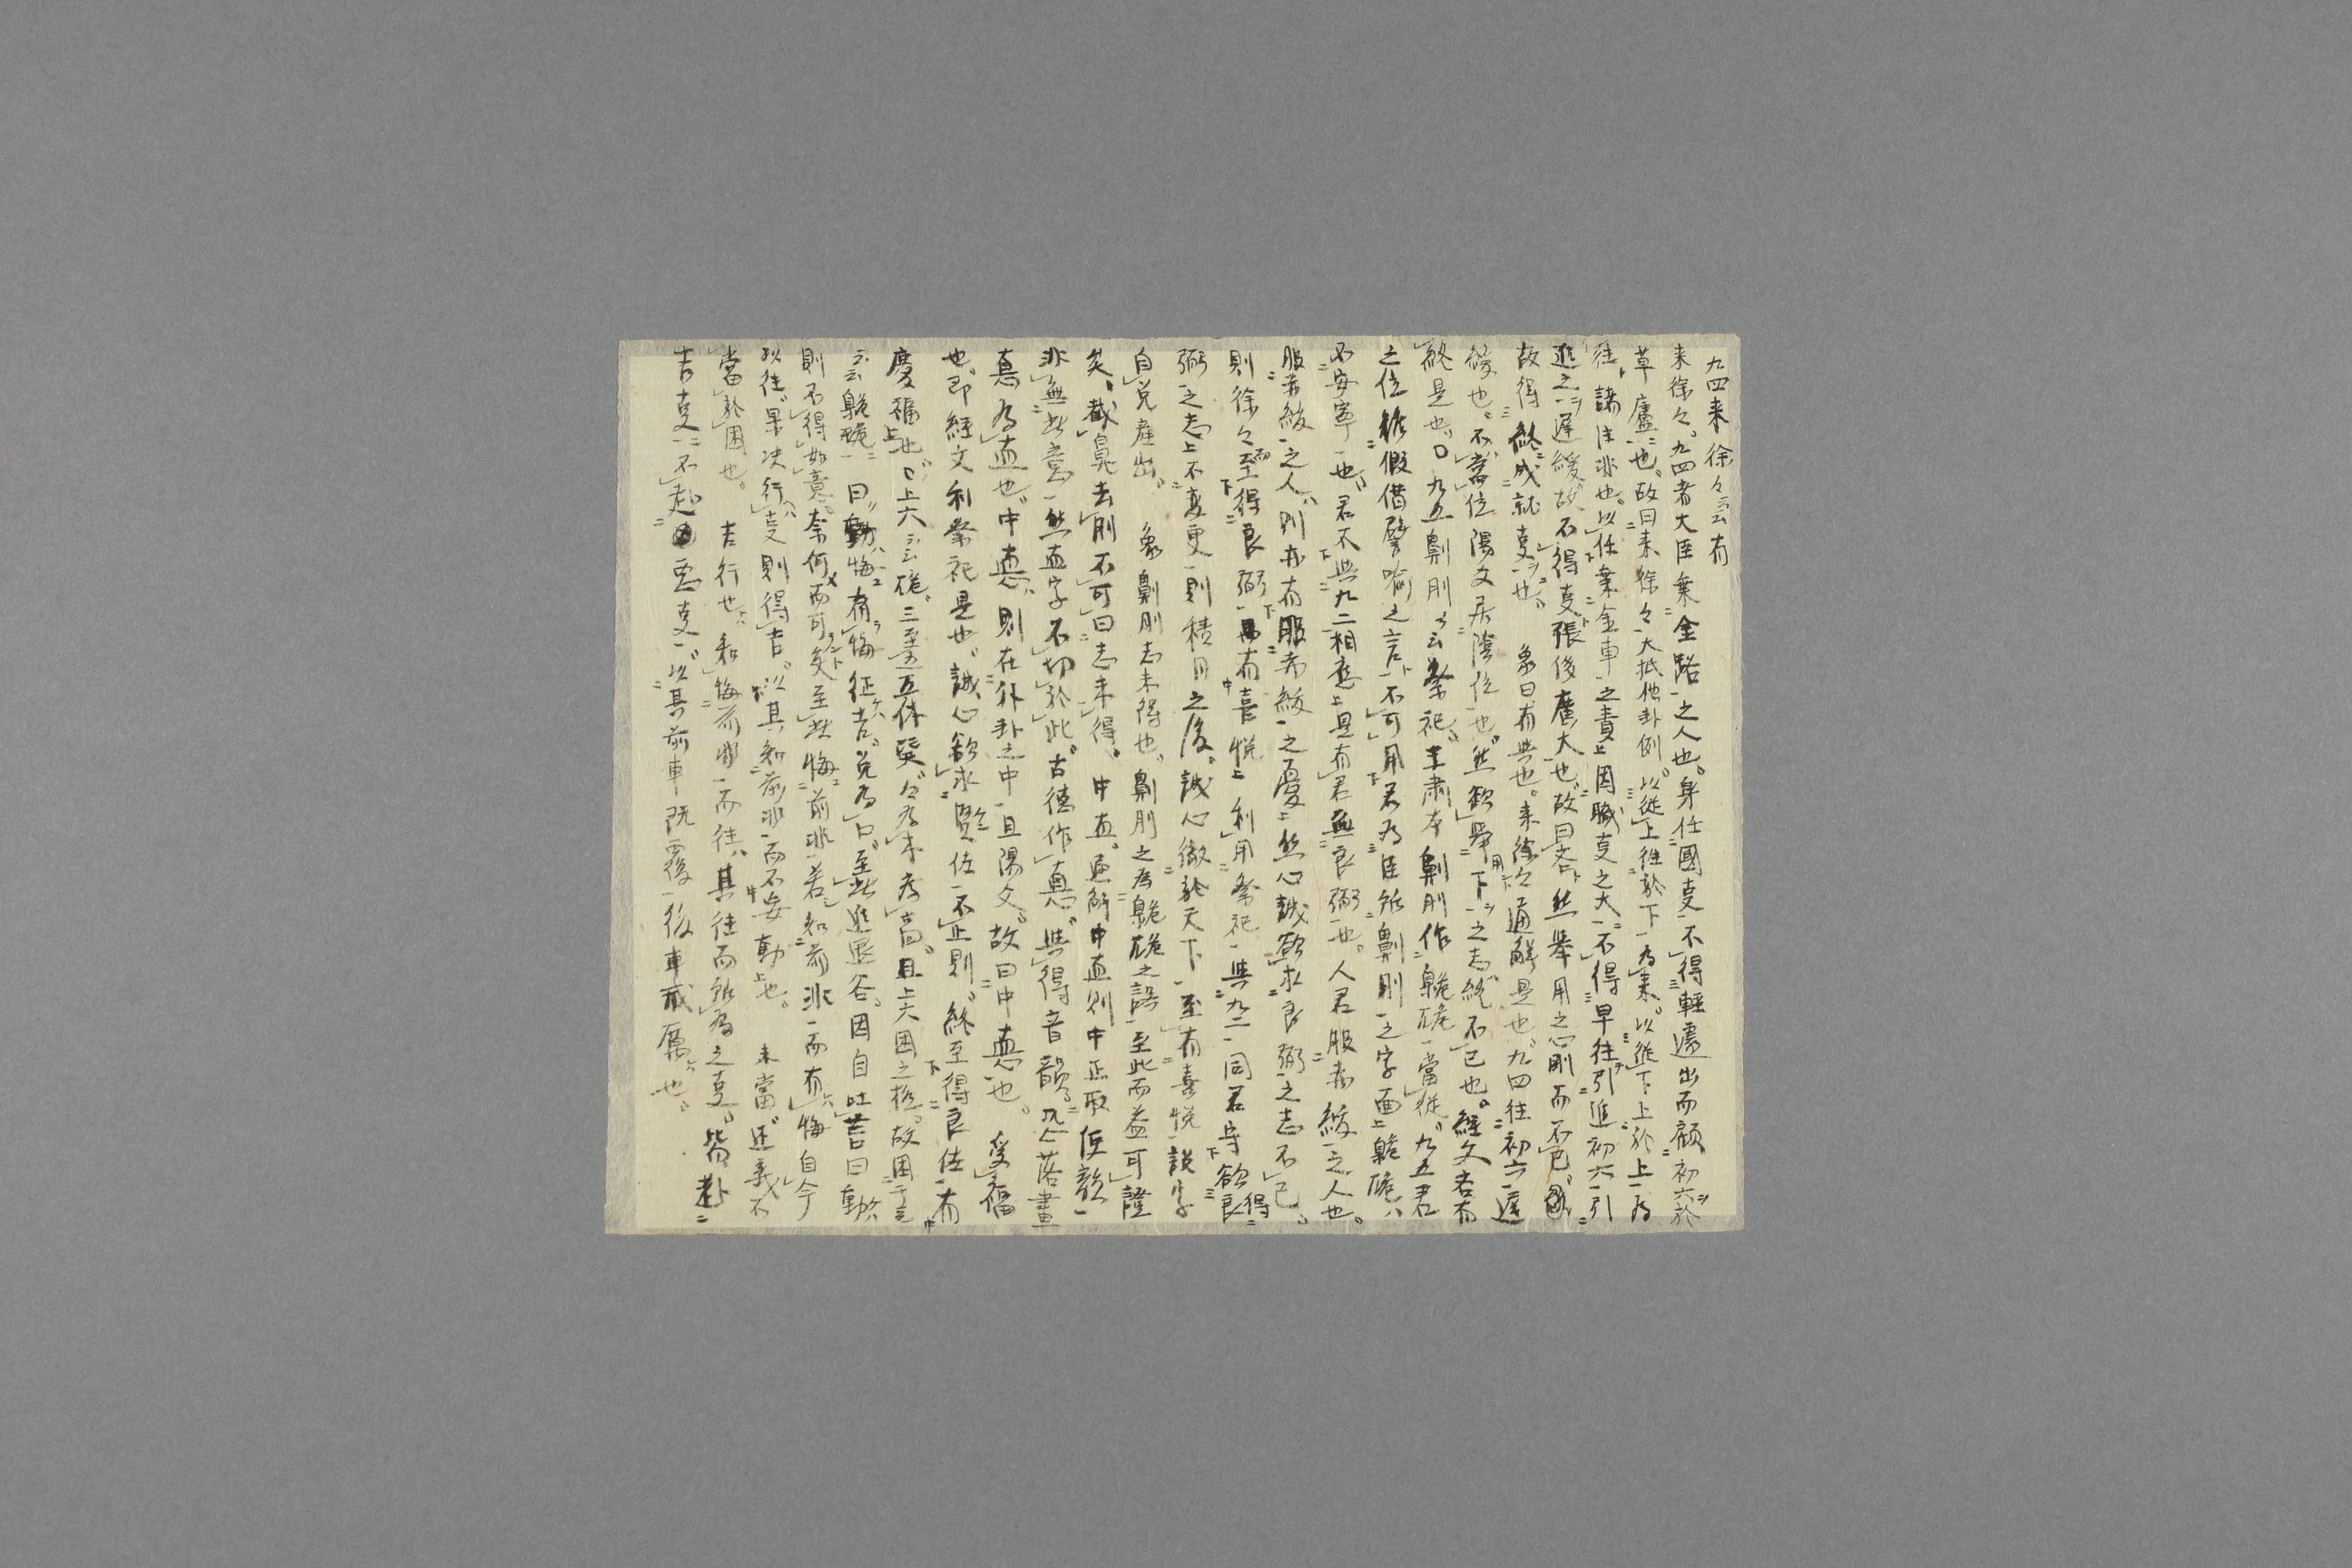 九四来徐々云有
来徐々。九四者大臣乗金路之人也。身任國事不得輕遽出而顧初六於
草廬也。故曰来徐々大抵他卦例。以従上往於下為来。以従下上於上為
往。諸注非也。以任乗金車之責上因職事之大不得早往引進初六引
進之遅緩故不得事張後廣大也。故曰吝然舉用之心剛而不已
故得終成就事也。象曰有與也。来徐々通解是也。九四往初六遅
緩也。不當位陽文居陰位也。然欲舉用下之志終不已也。經文吝有
終是也。〇九五劓刖云祭祀。王肅本劓刖作臲卼當従。九五君
之位雖假借譬喩之言不可用君為臣所劓刖之字面上臲卼
不安寧也。君不與九二相應上是有君無良弼也。人君服赤紱之人也。
服赤紱之人則亦有服赤紱之憂然心誠欲求良弼之志不已。
則徐々而至得良弼有喜悦利用祭祀與九二同君守欲得良
弼之志上不変更則積日之後。誠心徹於天下至有喜悦説字
自兌産出。象劓刖志未得也。劓刖之為臲卼之誤至此而益可證
矣、截鼻去刖不可曰志未得。中直。通解中直則中正取便韻
非無此意然直字不切於此。古德作悳。與得音韻。恐落畫
悳為直也。中悳則在外卦之中且陽文。故曰中悳也。受福
也、即經文利祭祀是也。誠心欲求賢佐不止則。終至得良佐有
慶福上也。〇上六云卼。三至五体巽々為木為高。且上六困之極。故困于
云臲卼曰動悔有悔征吉。兌為口。至此進退谷。因自吐言曰動
則不得如意。奈何而可矣至此悔前非若知前非而有悔自今
以往。果决行事則得吉。以其知前非而不妄動上也。未當。还義不
當於困也。吉行也。知悔前非而往、其往而所為之事。皆赴
吉事不赴惡事。以其前車既覆後車戒厲也。